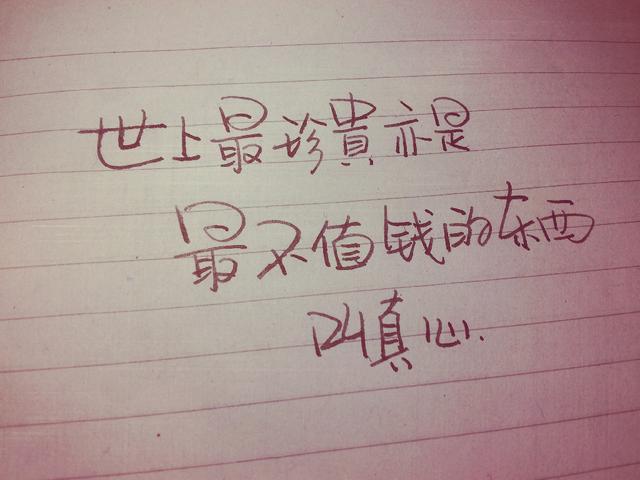 世上最珍貴亦是
最不值钱的东西
叫真心.